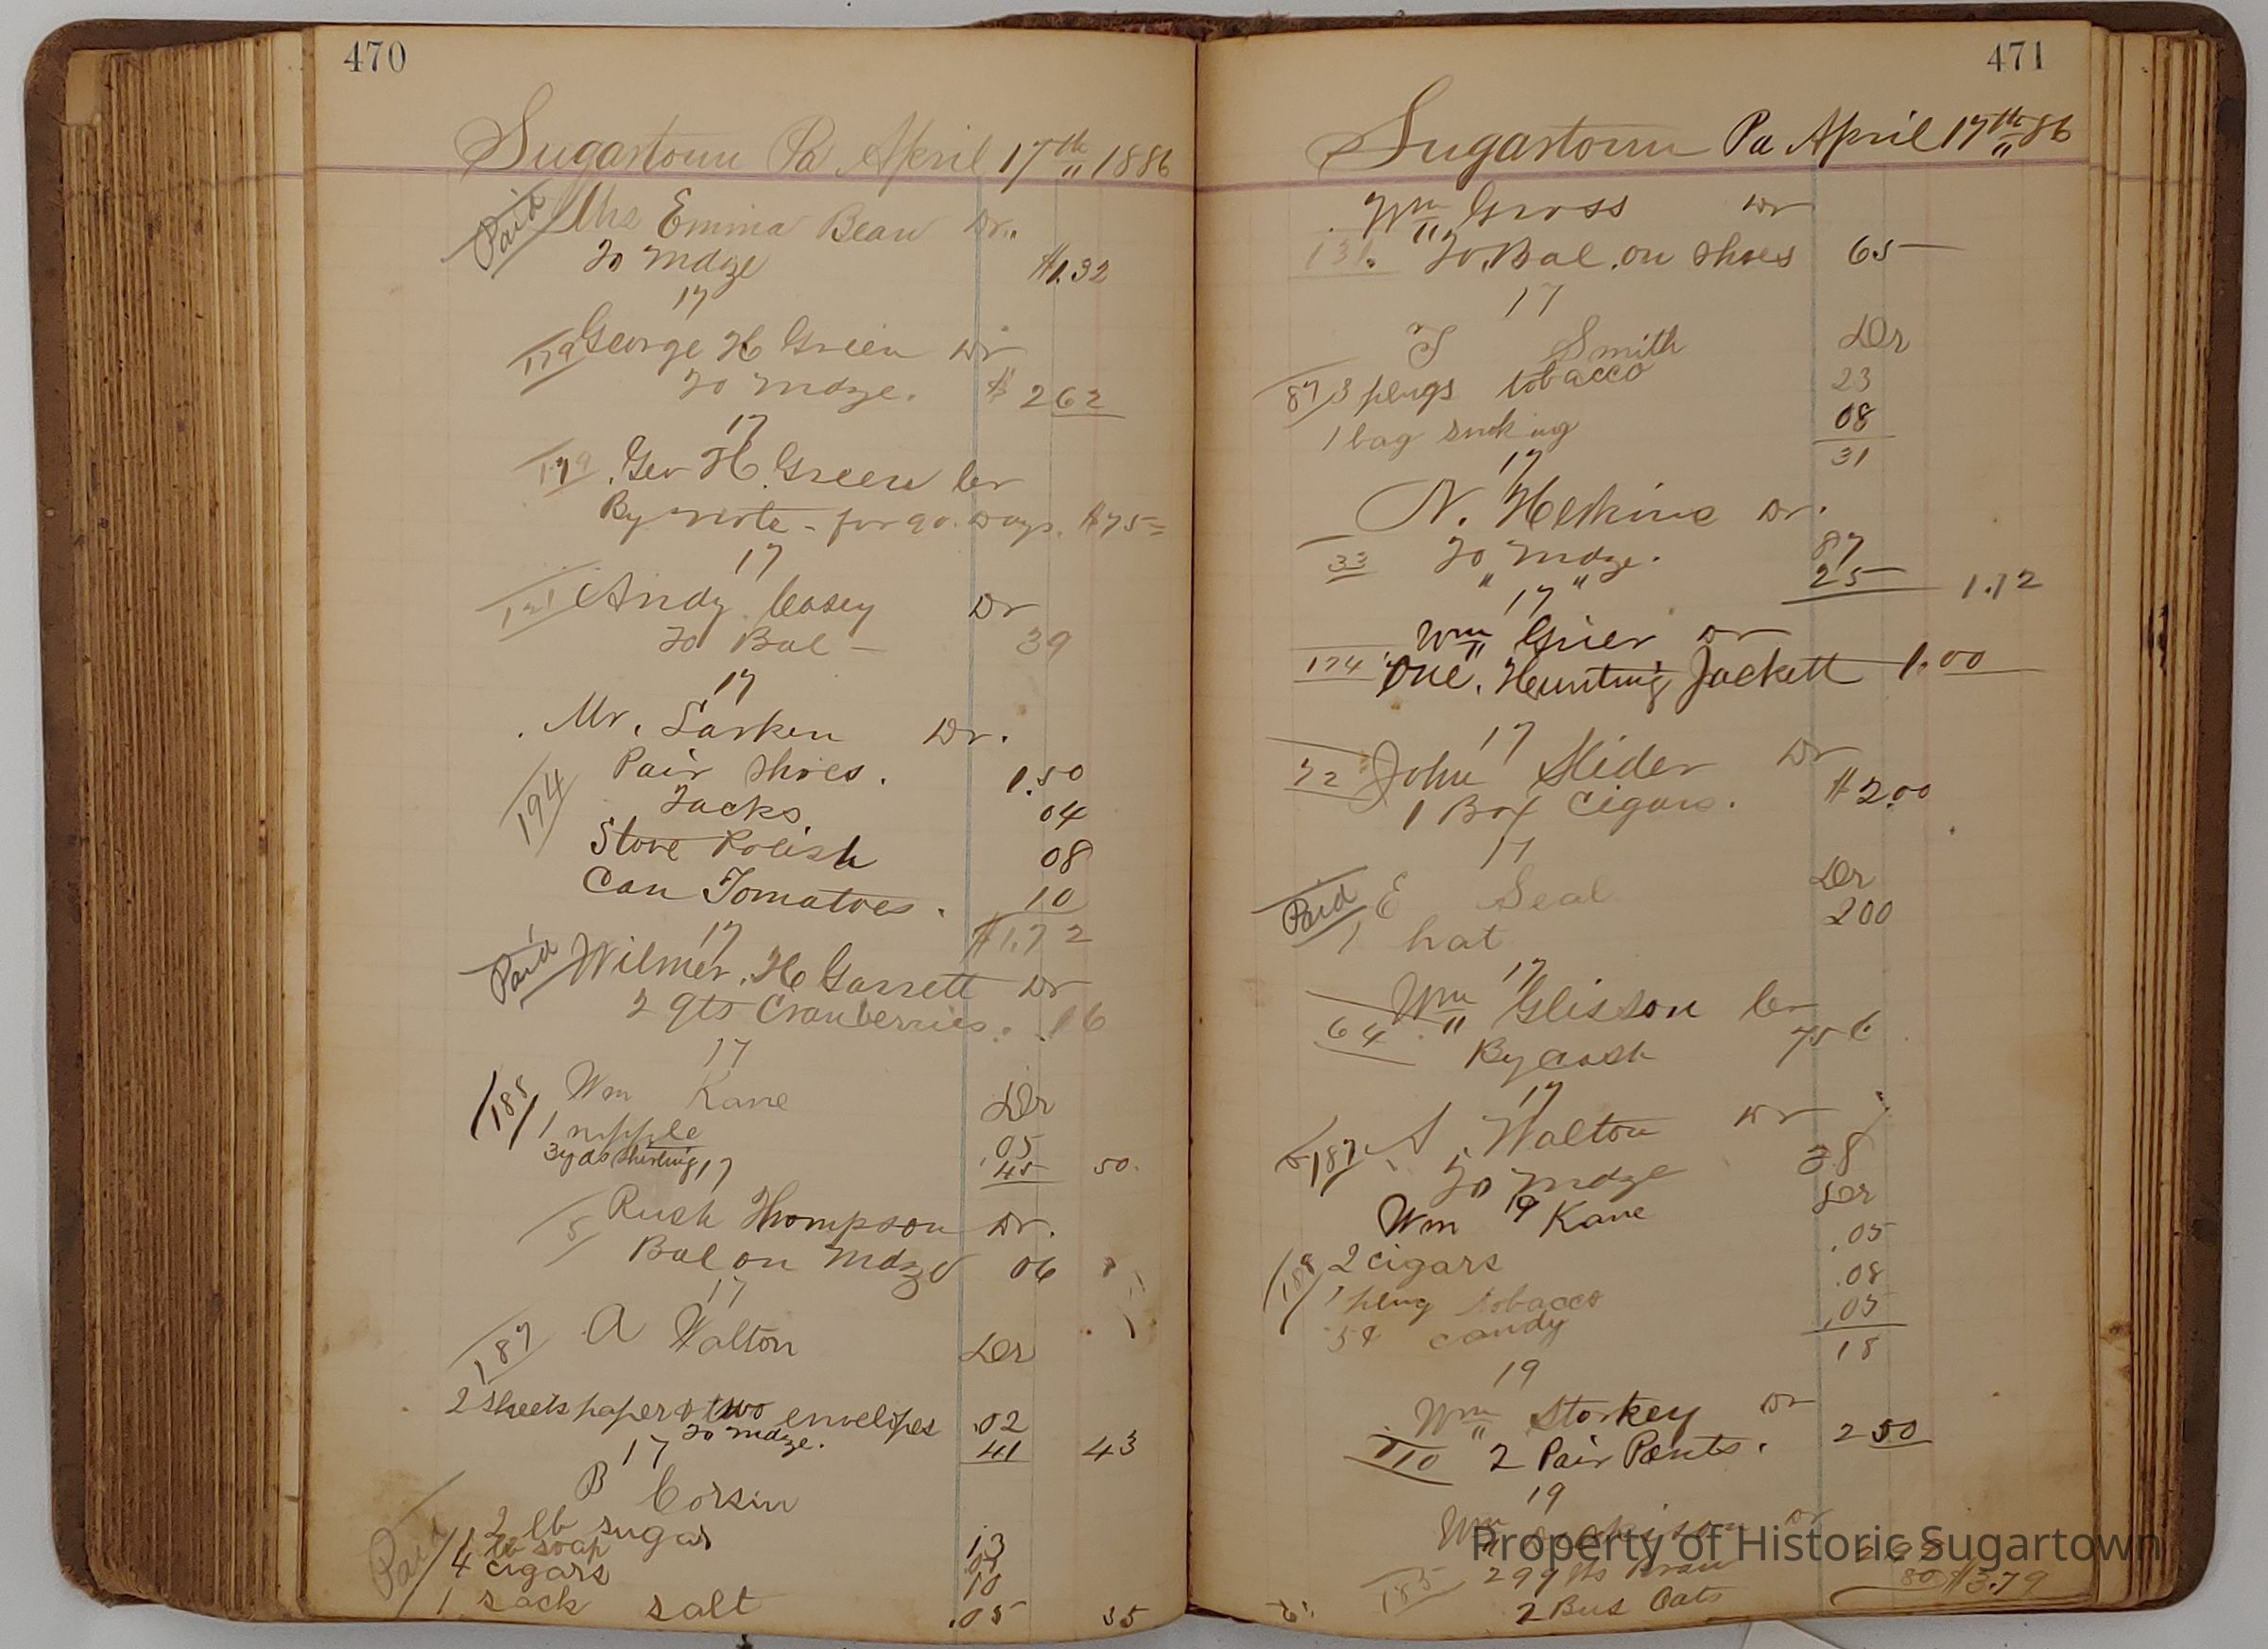 470
Sugartown Pa April 17th " 1886
Paid Mrs Emma Bean Dr.
To Mdze $1.32
17
179 George H Green Dr
To Mdze. $ 2 62
17
179 Geo H. Green Cr
By note - for 90. Days. $75=
17
121 Andy Casey Dr
To Bal - 39
17
Mr. Larken Dr.
194 Pair Shoes. 1.50
Tacks 04
Stove Polish 08
Can Tomatoes. 10
17 $1.72
Paid Wilmer. H Garrett Dr
2 qts Cranberries. 16
17
188 Wm Kane Dr
1 nipple .05
3yds Shirting 45 50.
17
5 Rush Thompson Dr.
Bal on Mdze 06
17
187 A Walton Dr
2 sheets paper & two envelopes .02
To Mdze. 41 43
17
B Corsin
Paid 2 lb sugar 13
1 lb soap
4 cigars 10
1 sack salt .05 35
471
Sugartown Pa April 17th " 86
Wm " Gross Dr
131. To Bal. on Shoes 65
17
T Smith Dr
87 3 plugs tobacco 23
1 bag smoking 08
31
17
N. Heskins Dr.
33 To Mdze. 87
" " 25 1.12
17
Wm " Grier Dr
174 One. Hunting Jackett 1.00
17
72 John Slider Dr
1 Box Cigars. $2.00
17
Paid E Seal Dr
1 hat 200
17
64 Wm " Glisson Cr
By Cash 756
17
187 A. Walton Dr
To Mdze 38
19
Wm Kane Dr
188 2 cigars .05
1 plug tobacco .08
5¢ candy .05
18
19
Wm " Storkey Dr
110 2 Pair Pants. 2 50
19
Wm Dr
185 299 lbs Bran 2.99
2 Bus Oats 80 $3.79
Property of Historic Sugartown